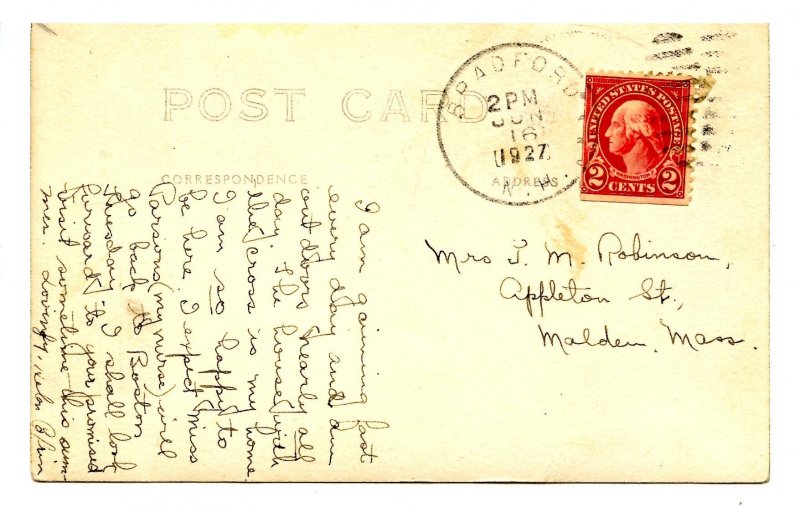 POST CARD
CORRESPONDENCE
ADDRESS
BRADFORD
2 PM
JUN
16
1927
N.H.
UNITED STATES POSTAGE
WASHINGTON
2 CENTS 2
Mrs J. M. Robinson,
Appleton St.,
Malden, Mass.
I am gaining fast
every day and am
outdoors nearly all
day. The house with
the cross is my home
I am so happy to
be here. I expect Miss
Parsons (my nurse) will
go back to Boston
Thursday. I shall look
forward to your promised
visit sometime this sum-
mer. Lovingly,